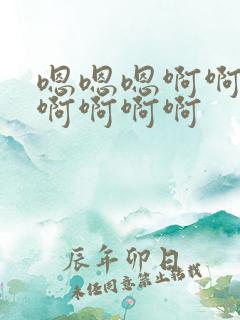 嗯嗯嗯啊啊
啊啊啊啊
辰年卯日
未经同意禁止转载